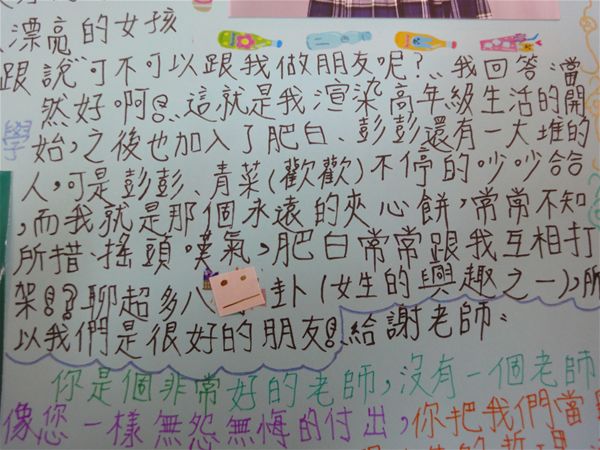 漂亮的女孩
跟說"可不可以跟我做朋友呢?"我回答:當
然好啊!這就是我渲染高年級生活的開
學始,之後也加入了肥白、彭彭還有一大堆的
人,可是彭彭、青菜(歡歡)不停的吵吵合合
,而我就是那個永遠的夾心餅,常常不知
所措、搖頭嘆氣,肥白常常跟我互相打
架!?聊超多八卦(女生的興趣之一),所
以我們是很好的朋友!給謝老師:
你是個非常好的老師,沒有一個老師
像您一樣無怨無悔的付出,你把我們當